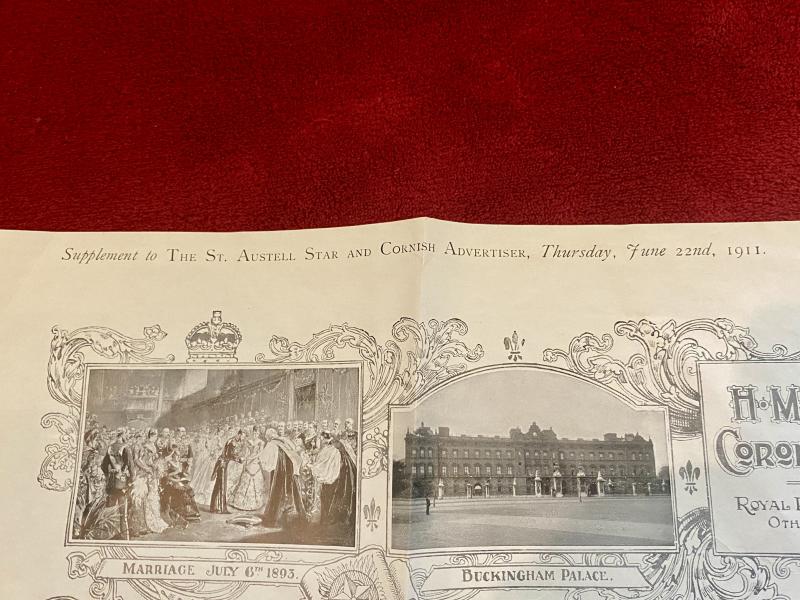 Supplement to The St. Austell Star and Cornish Advertiser, Thursday, June 22nd, 1911.
H·M
Coro
Royal
Oth
Marriage July 6th 1893.
Buckingham Palace.